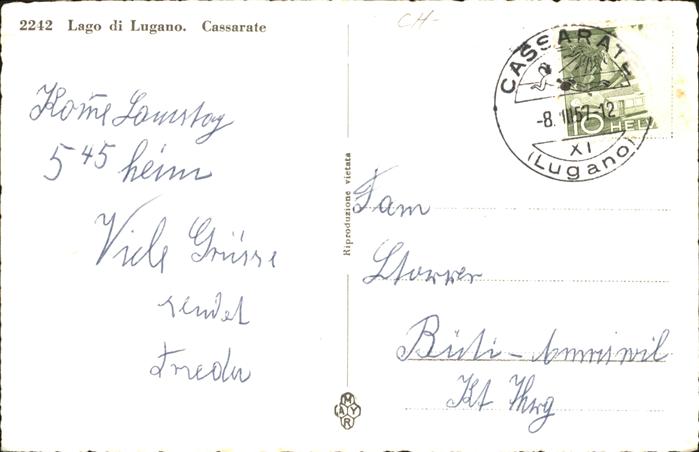 2242 Lago di Lugano. Cassarate
CH-
Kom̄e Samstag
5 45 heim
Viele Grüsse
sendet
Frieda
Riproduzione vietata
MAYR
CASSARATE
-8. VII 57-12
XI
(Lugano)
10 HELV
Fam
Storrer
Büti - Amriswil
Kt Thrg